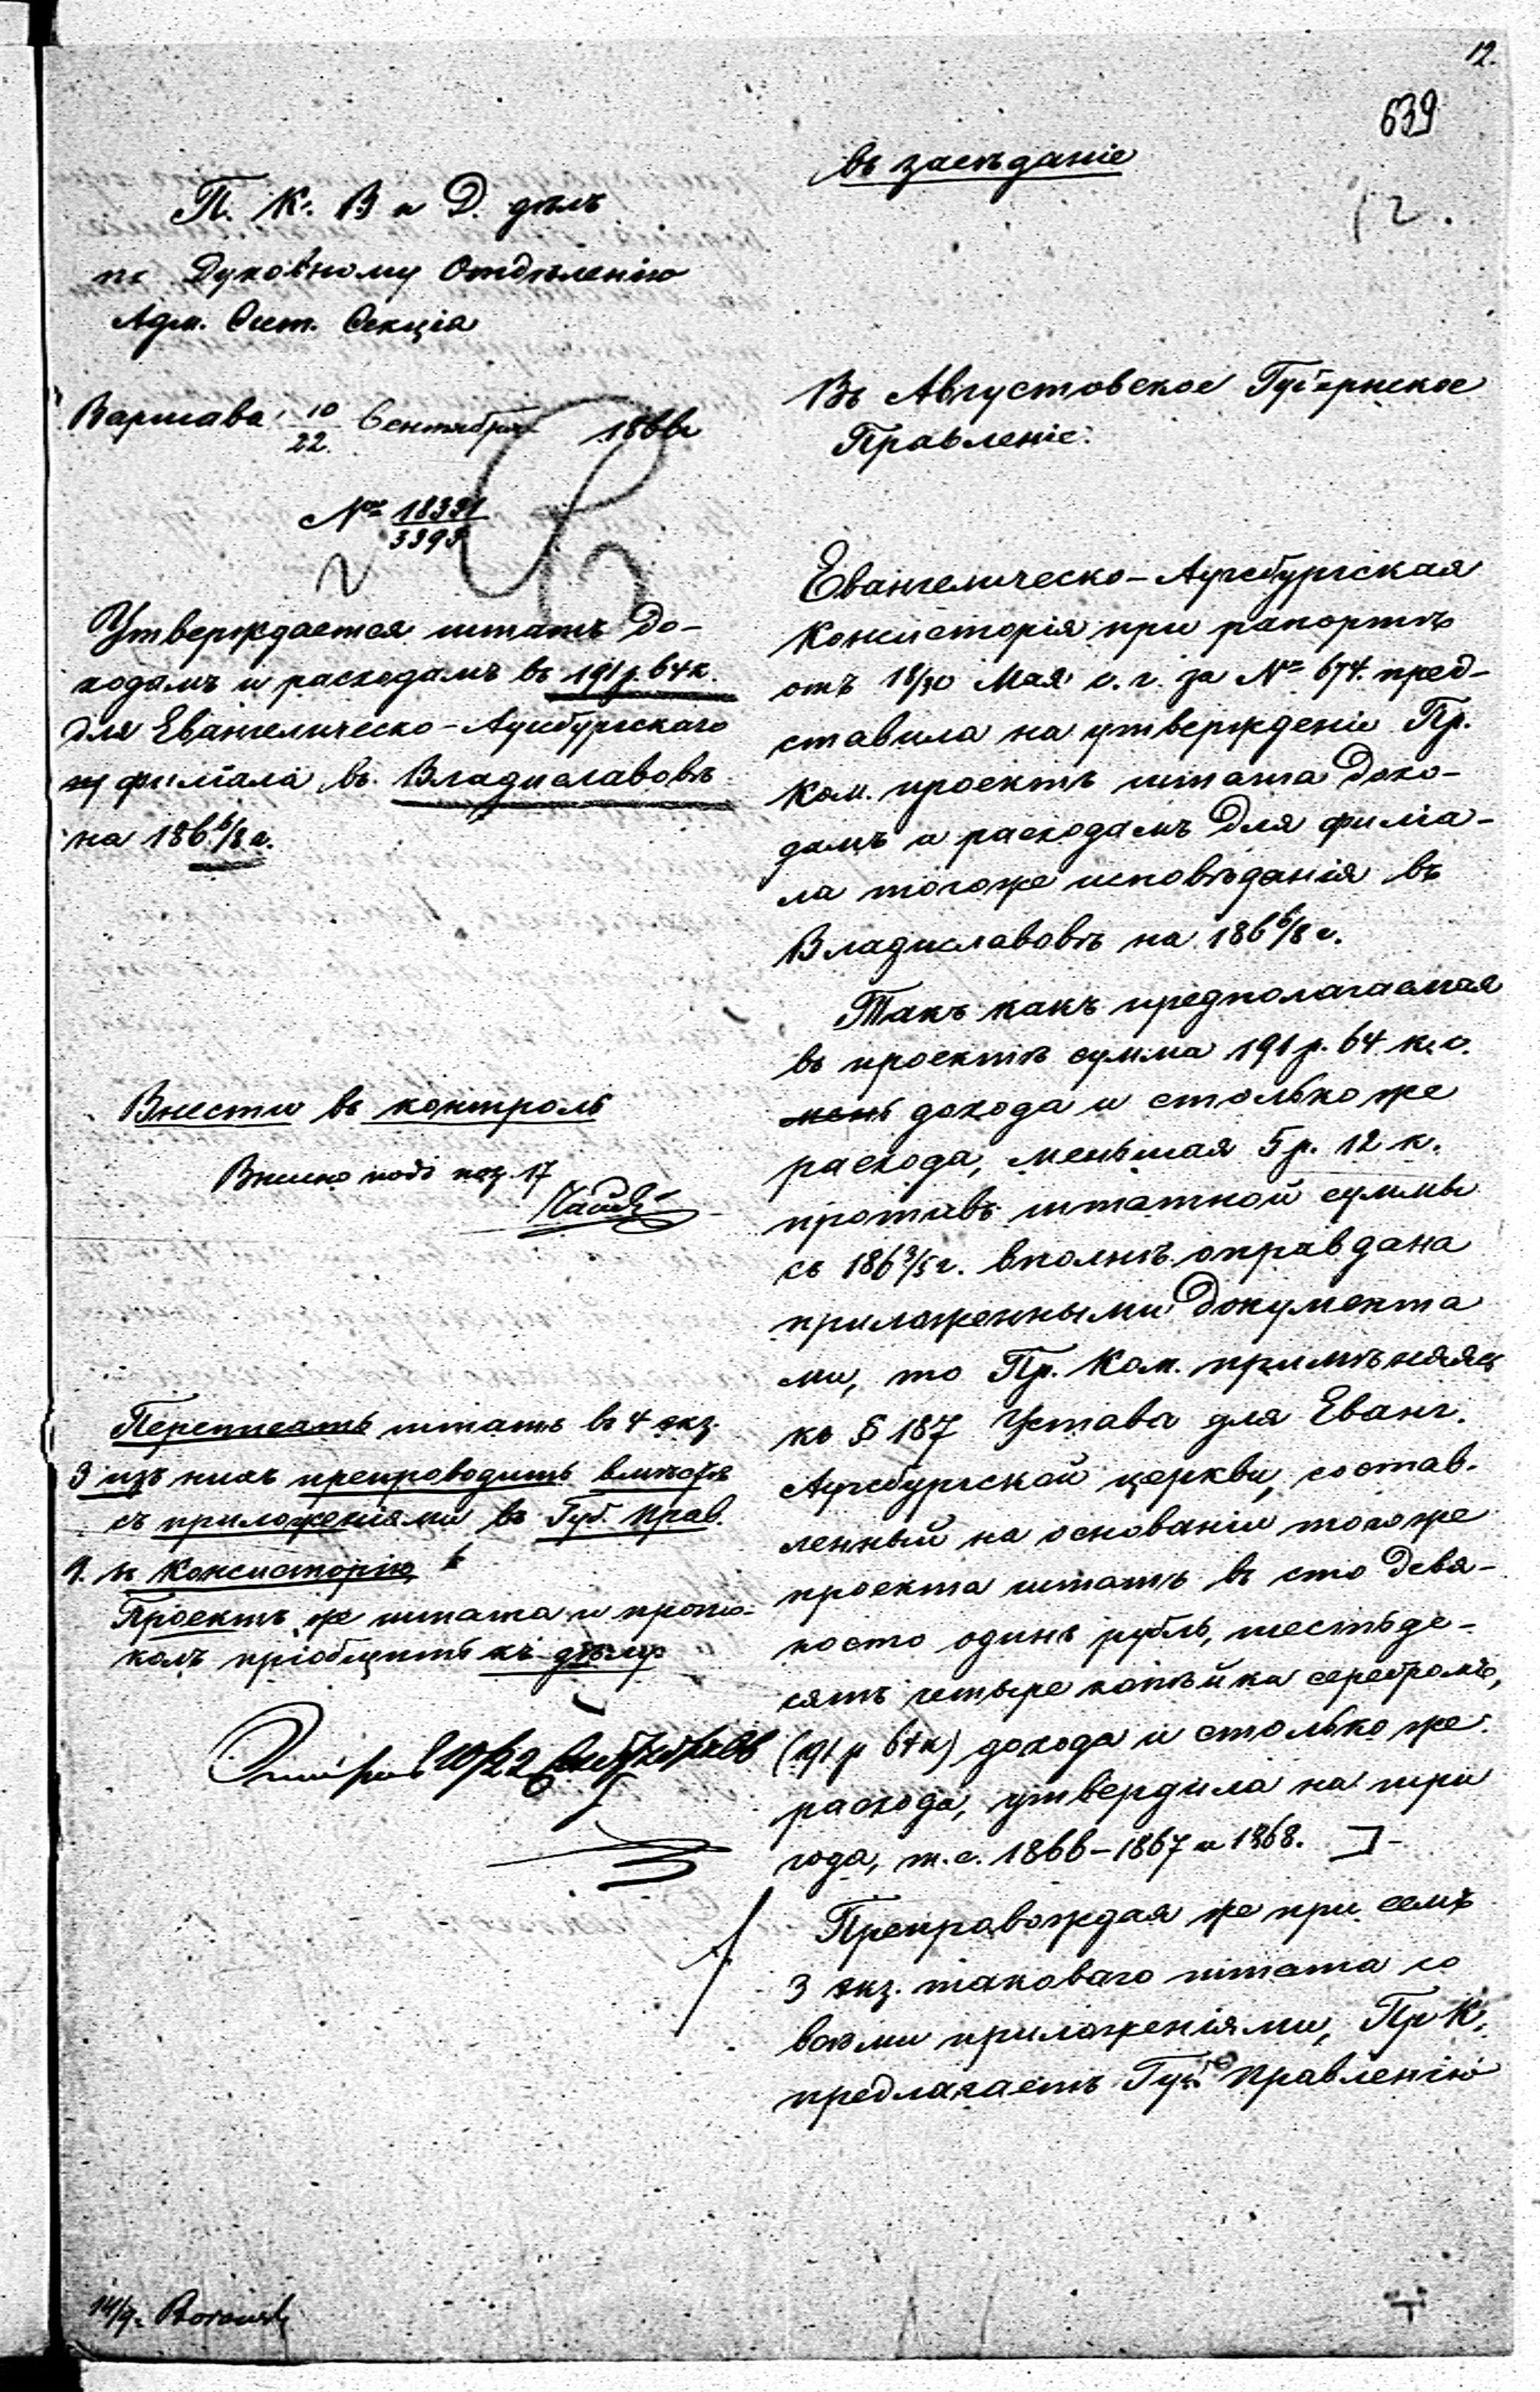 12.
639
въ засѣданіе
12.
П. К. В и Д. дѣлъ
по Духовному Отдѣленію
Адм. Сист. Секція
Варшава, 10/22 Сентября 1866
№ 18391/3393
Утверждается штатъ до-
ходамъ и расходамъ въ 191 р. 64 к.
для Евангелическо-Аугсбургскаго
филіала въ Владиславовѣ
на 186 6/8 г.
Внести въ контроль
Внесено подъ поз. 17
Переписать штатъ въ 4 экз.
3 изъ нихъ препроводить вмѣстѣ
съ приложеніями въ Губ. Прав.
1. въ Консисторію
Проектъ же штата и прото-
колъ пріобщить къ дѣлу
10/22 Сентября 66
14/9.
Въ Августовское Губернское
Правленіе.
Евангелическо-Аугсбургская
Консисторія при рапортѣ
отъ 18/30 Мая с. г. за № 674. пред-
ставила на утвержденіе Пр.
Ком. проектъ штата дохо-
дамъ и расходамъ для филіа-
ла тогоже исповѣданія въ
Владиславовѣ на 186 6/8 г.
Такъ какъ предполагаемая
въ проектѣ сумма 191 р. 64 к. с.
дохода и столько же
расхода, меньшая 5 р. 12 к.
противъ штатной суммы
съ 186 3/5 г. вполнѣ оправдана
приложенными документа
ми, то Пр. Ком. примѣняясь
къ § 187 Устава для Еванг.
Аугсбургской церкви, состав-
ленный на основаніи тогоже
проекта штатъ въ сто девя-
носто одинъ рубль, шестьде-
сятъ четыре копѣйки серебромъ,
(191 р 64 к) дохода и столько же
расхода, утвердила на три
года, т. е. 1866-1867 и 1868.
Препровождая же при семъ
3 экз. таковаго штата со
всѣми приложеніями, Пр. К.
предлагаетъ Губ. Правленію